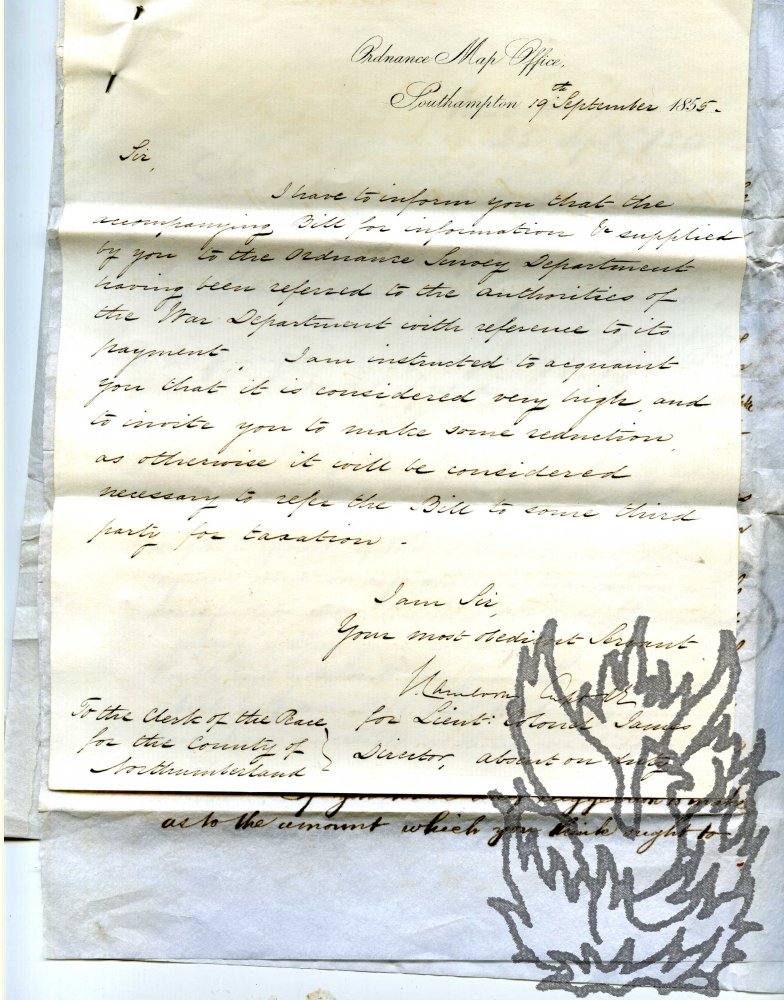 Ordnance Map Office,
Southampton 19th September 1855.
Sir,
I have to inform you that the
accompanying Bill for information &c supplied
by you to the Ordnance Survey Department
having been referred to the authorities of
the War Department with reference to its
payment, I am instructed to acquaint
you that it is considered very high, and
to invite you to make some reduction,
as otherwise it will be considered
necessary to refer the Bill to some third
party for taxation.
I am Sir,
Your most obedient Servant
for Lieut: Colonel James
Director, absent on duty
To the Clerk of the Peace
for the County of
Northumberland
as to the amount which you think ought to